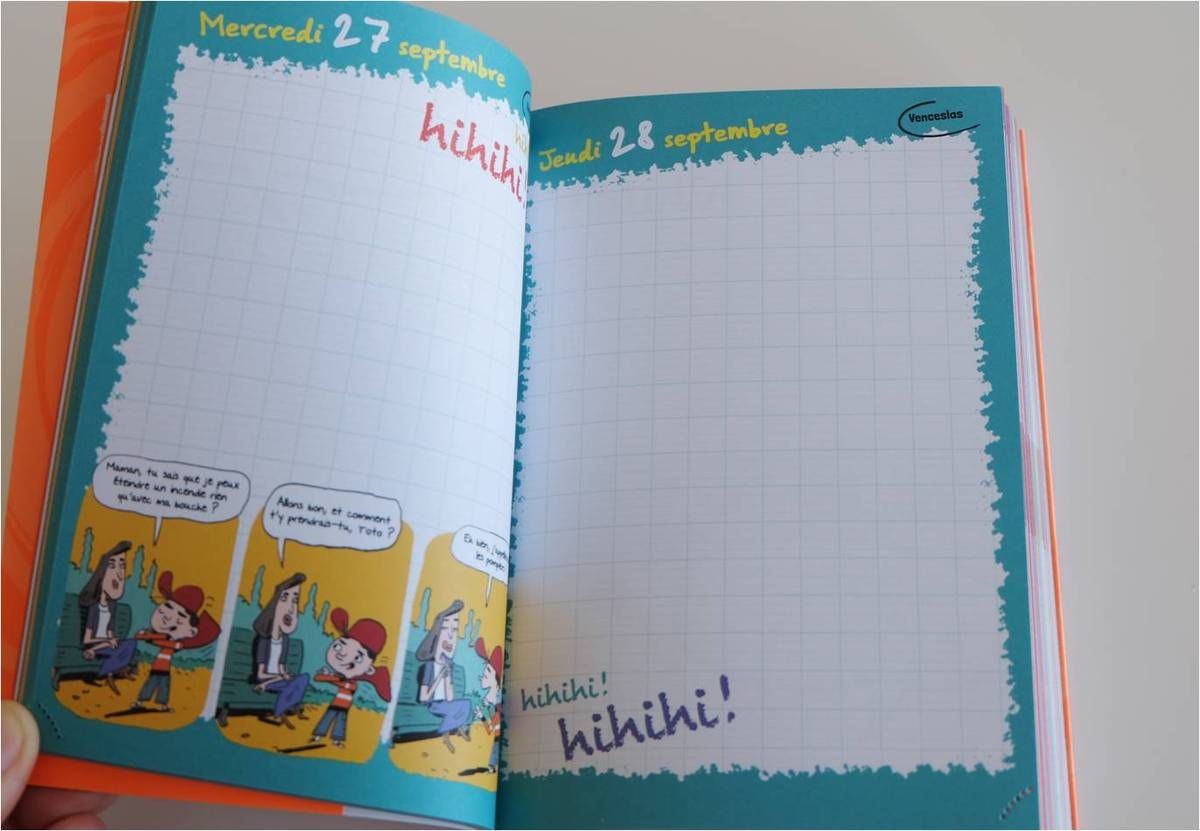 Mercredi 27 septembre
hihihi!
Maman, tu sais que je peux
éteindre un incendie rien
qu'avec ma bouche ?
Allons bon, et comment
t'y prendrais-tu, Toto ?
Eh ben,
les
Jeudi 28 septembre
Venceslas
hihihi!
hihihi!